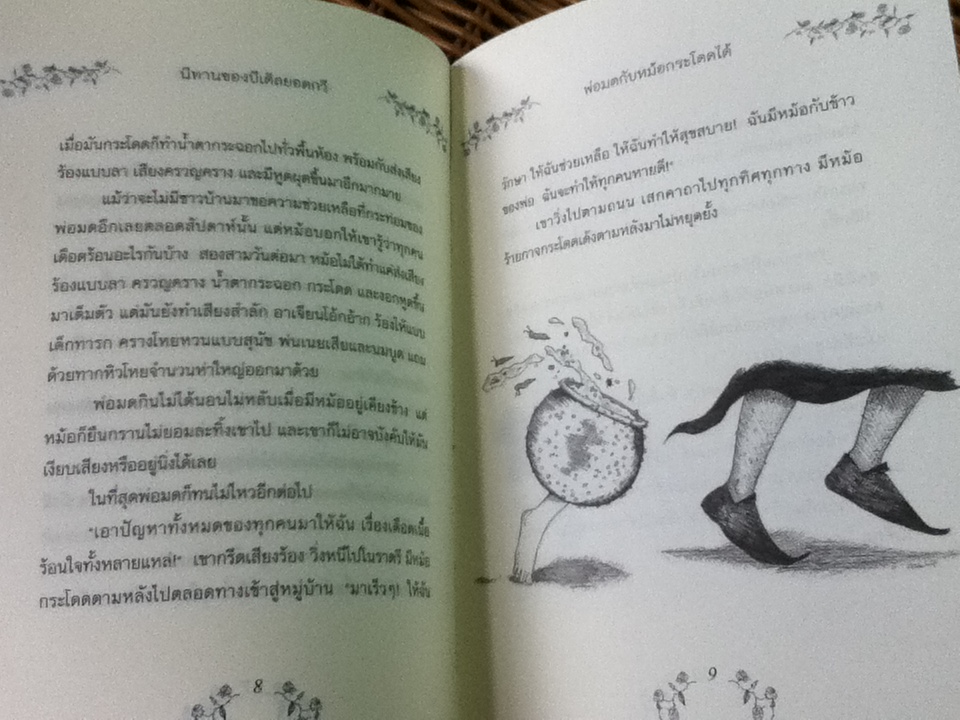 นิทานของบีเดิลยอดกวี
เมื่อมันกระโดดก็ทำน้ำตากระฉอกไปทั่วพื้นห้อง พร้อมกับส่งเสียง
ร้องแบบลา เสียงครวญคราง และมีหูดผุดขึ้นมาอีกมากมาย
แม้ว่าจะไม่มีชาวบ้านมาขอความช่วยเหลือที่กระท่อมของ
พ่อมดอีกเลยตลอดสัปดาห์นั้น แต่หม้อบอกให้เขารู้ว่าทุกคน
เดือดร้อนอะไรกันบ้าง สองสามวันต่อมา หม้อไม่ได้ทำแค่ส่งเสียง
ร้องแบบลา ครวญคราง น้ำตากระฉอก กระโดด และงอกหูดขึ้น
มาเต็มตัว แต่มันยังทำเสียงสำลัก อาเจียนโอ้กอ้าก ร้องไห้แบบ
เด็กทารก ครางโหยหวนแบบสุนัข พ่นเนยเสียและนมบูด แถม
ด้วยทากหิวโหยจำนวนห่าใหญ่ออกมาด้วย
พ่อมดกินไม่ได้นอนไม่หลับเมื่อมีหม้ออยู่เคียงข้าง แต่
หม้อก็ยืนกรานไม่ยอมละทิ้งเขาไป และเขาก็ไม่อาจบังคับให้มัน
เงียบเสียงหรืออยู่นิ่งได้เลย
ในที่สุดพ่อมดก็ทนไม่ไหวอีกต่อไป
"เอาปัญหาทั้งหมดของทุกคนมาให้ฉัน เรื่องเดือดเนื้อ
ร้อนใจทั้งหลายแหล่!" เขากรีดเสียงร้อง วิ่งหนีไปในราตรี มีหม้อ
กระโดดตามหลังไปตลอดทางเข้าสู่หมู่บ้าน "มาเร็วๆ! ให้ฉัน
8
พ่อมดกับหม้อกระโดดได้
รักษา ให้ฉันช่วยเหลือ ให้ฉันทำให้สุขสบาย! ฉันมีหม้อกับข้าว
ของพ่อ ฉันจะทำให้ทุกคนหายดี!"
เขาวิ่งไปตามถนน เสกคาถาไปทุกทิศทุกทาง มีหม้อ
ร้ายกาจกระโดดเด้งตามหลังมาไม่หยุดยั้ง
9